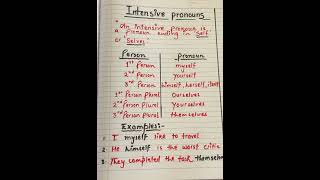 Intensive pronouns
"An intensive pronoun is
a pronoun ending in Self
or Selves"
Person pronoun
1st Person myself
2nd Person yourself
3rd Person himself, herself, itself
1st Person plural Ourselves
2nd Person plural Yourselves
3rd Person plural themselves
Examples:-
1. I myself like to travel
2. He himself is the worst critic
3. They completed the task themse